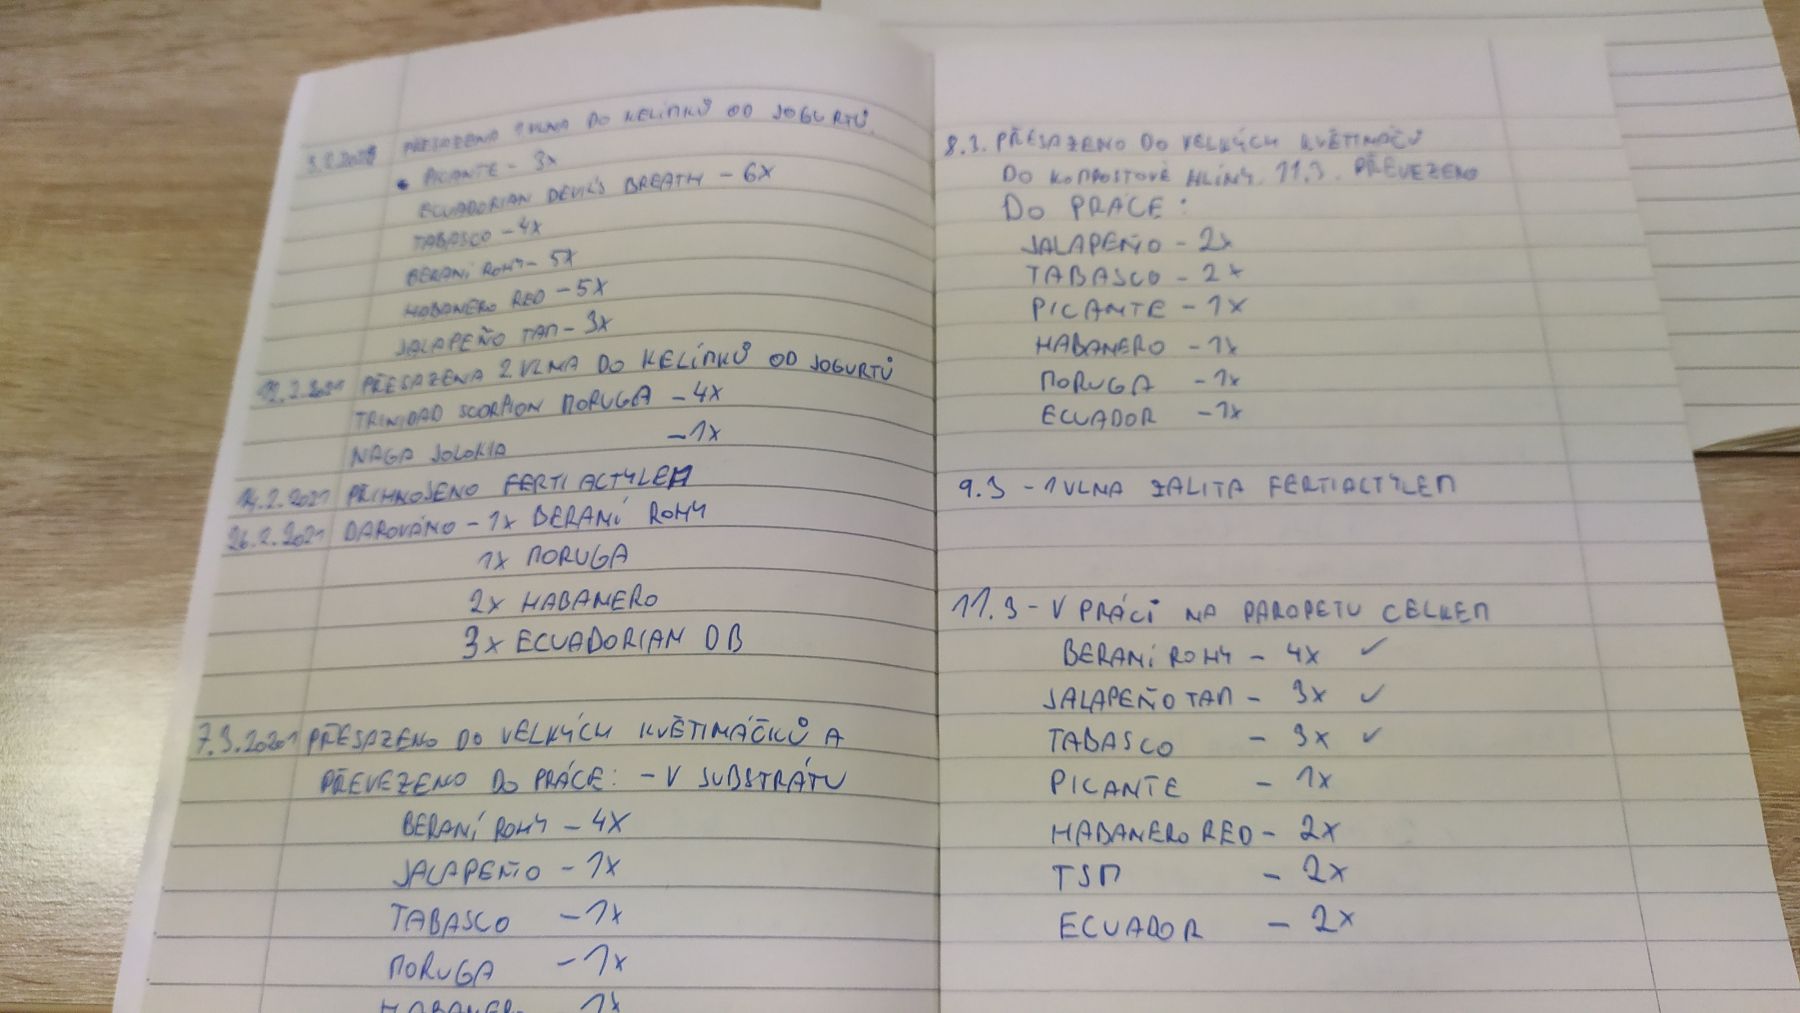 3.2.2021 PŘESAZENA 1 VLNA DO KELÍMKŮ OD JOGURTŮ
PICANTE - 3x
ECUADORIAN DEVIL'S BREATH - 6x
TABASCO - 4x
BERANÍ ROHY - 5x
HABANERO RED - 5x
JALAPEÑO TAM - 3x
12.2.2021 PŘESAZENA 2. VLNA DO KELÍMKŮ OD JOGURTŮ
TRINIDAD SCORPION MORUGA - 4x
NAGA JOLOKIA - 1x
14.2.2021 PŘIHNOJENO FERTIACTYLEM
26.2.2021 DAROVÁNO - 1x BERANÍ ROHY
1x MORUGA
2x HABANERO
3x ECUADORIAN DB
7.3.2021 PŘESAZENO DO VELKÝCH KVĚTINÁČKŮ A
PŘEVEZENO DO PRÁCE: - V SUBSTRÁTU
BERANÍ ROHY - 4x
JALAPEÑO - 1x
TABASCO - 1x
MORUGA - 1x
HABANERO 1x
8.3. PŘESAZENO DO VELKÝCH KVĚTINÁČŮ
DO KOMPOSTOVÉ HLÍNY. 11.3. PŘEVEZENO
DO PRACE:
JALAPEÑO - 2x
TABASCO - 2x
PICANTE - 1x
HABANERO - 1x
MORUGA - 1x
ECUADOR - 1x
9.3 - 1 VLNA ZALITA FERTIACTYLEM
11.3 - V PRÁCI NA PAROPETU CELKEM
BERANÍ ROHY - 4x ✓
JALAPEÑO TAM - 3x ✓
TABASCO - 3x ✓
PICANTE - 1x
HABANERO RED - 2x
TSM - 2x
ECUADOR - 2x